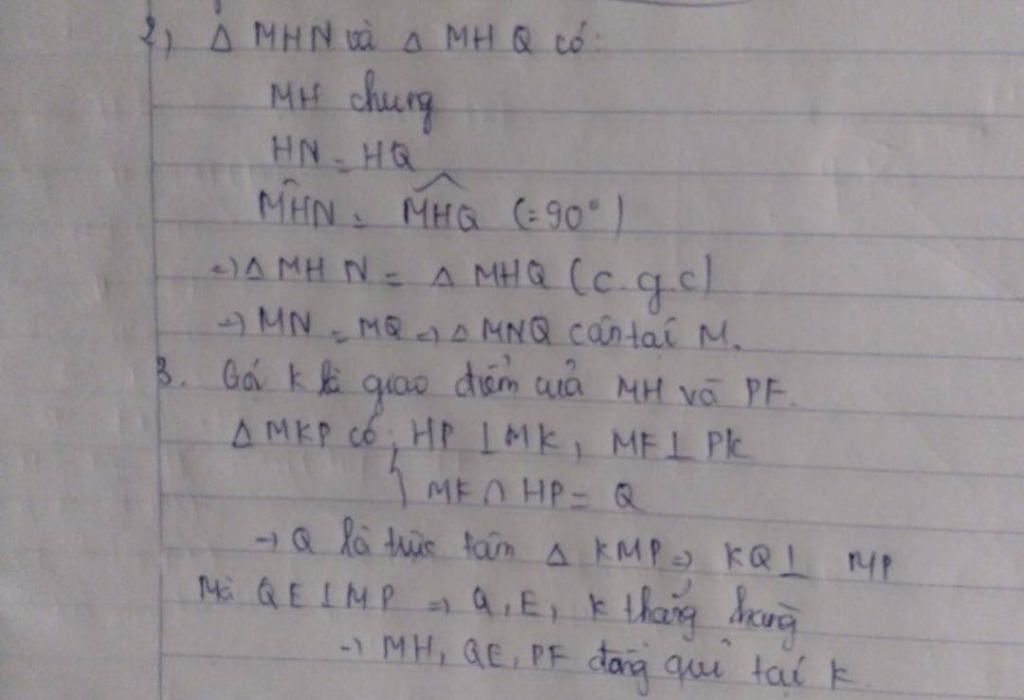 2, Δ MHN và Δ MHQ có:
MH chung
HN = HQ
MHN = MHQ (= 90°)
=> Δ MHN = Δ MHQ (c.g.c)
=> MN = MQ => Δ MNQ cân tại M.
3. Gọi K là giao điểm của MH và PF.
Δ MKP có { HP ⊥ MK, MF ⊥ PK
MF ∩ HP = Q
=> Q là trực tâm Δ KMP => KQ ⊥ MP
Mà QE ⊥ MP => Q, E, K thẳng hàng
=> MH, QE, PF đồng qui tại K